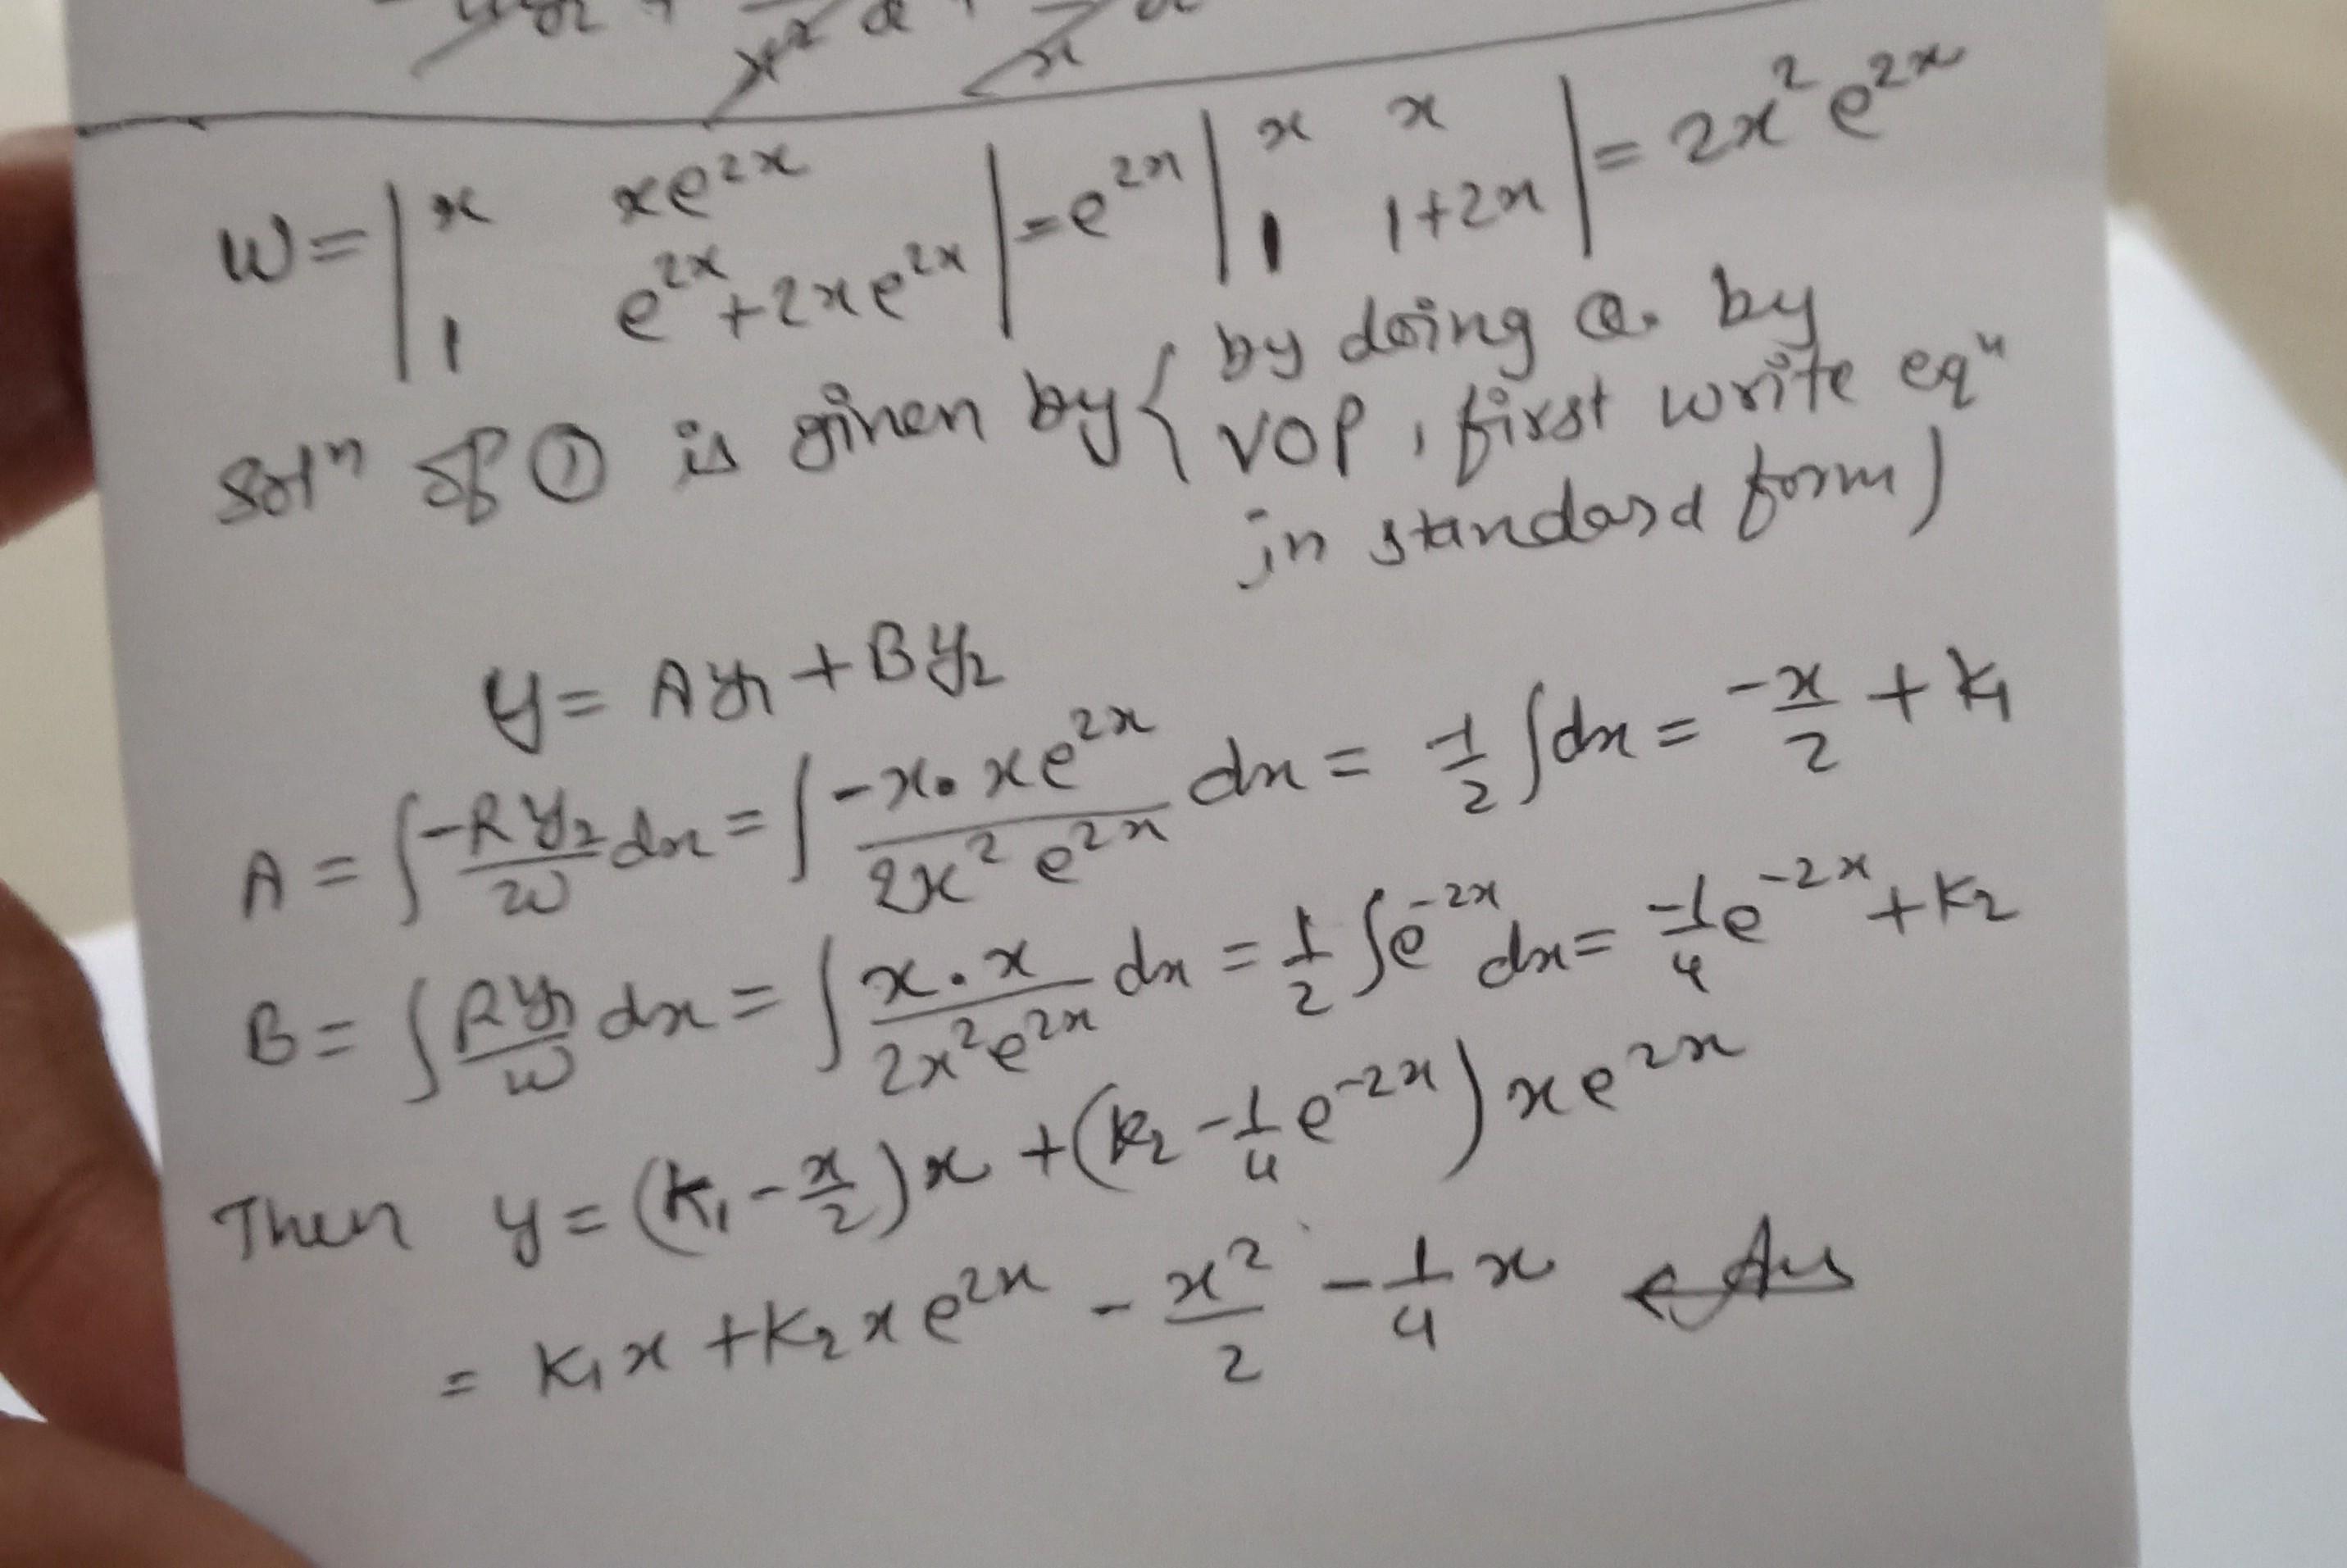 W = | x xe^{2x} ; 1 e^{2x}+2xe^{2x} | = e^{2x} | x x ; 1 1+2x | = 2x² e^{2x}
Solⁿ of ① is given by { by doing Q. by
VOP, first write eqⁿ
in standard form)
y = Ay₁ + By₂
A = ∫ -Ry₂/W dx = ∫ -x·xe^{2x}/2x² e^{2x} dx = -1/2 ∫dx = -x/2 + k₁
B = ∫ Ry₁/W dx = ∫ x·x/2x²e^{2x} dx = 1/2 ∫e^{-2x} dx = -1/4 e^{-2x} + k₂
Then y = (k₁ - x/2)x + (k₂ - 1/4 e^{-2x}) xe^{2x}
= k₁x + k₂xe^{2x} - x²/2 - 1/4 x ← Ans